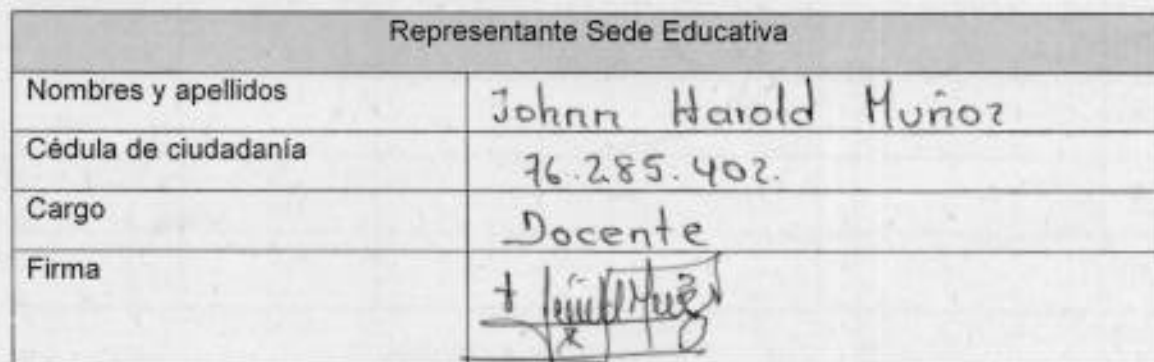 Representante Sede Educativa
Nombres y apellidos Johnn Harold Muñoz
Cédula de ciudadanía 76.285.402.
Cargo Docente
Firma